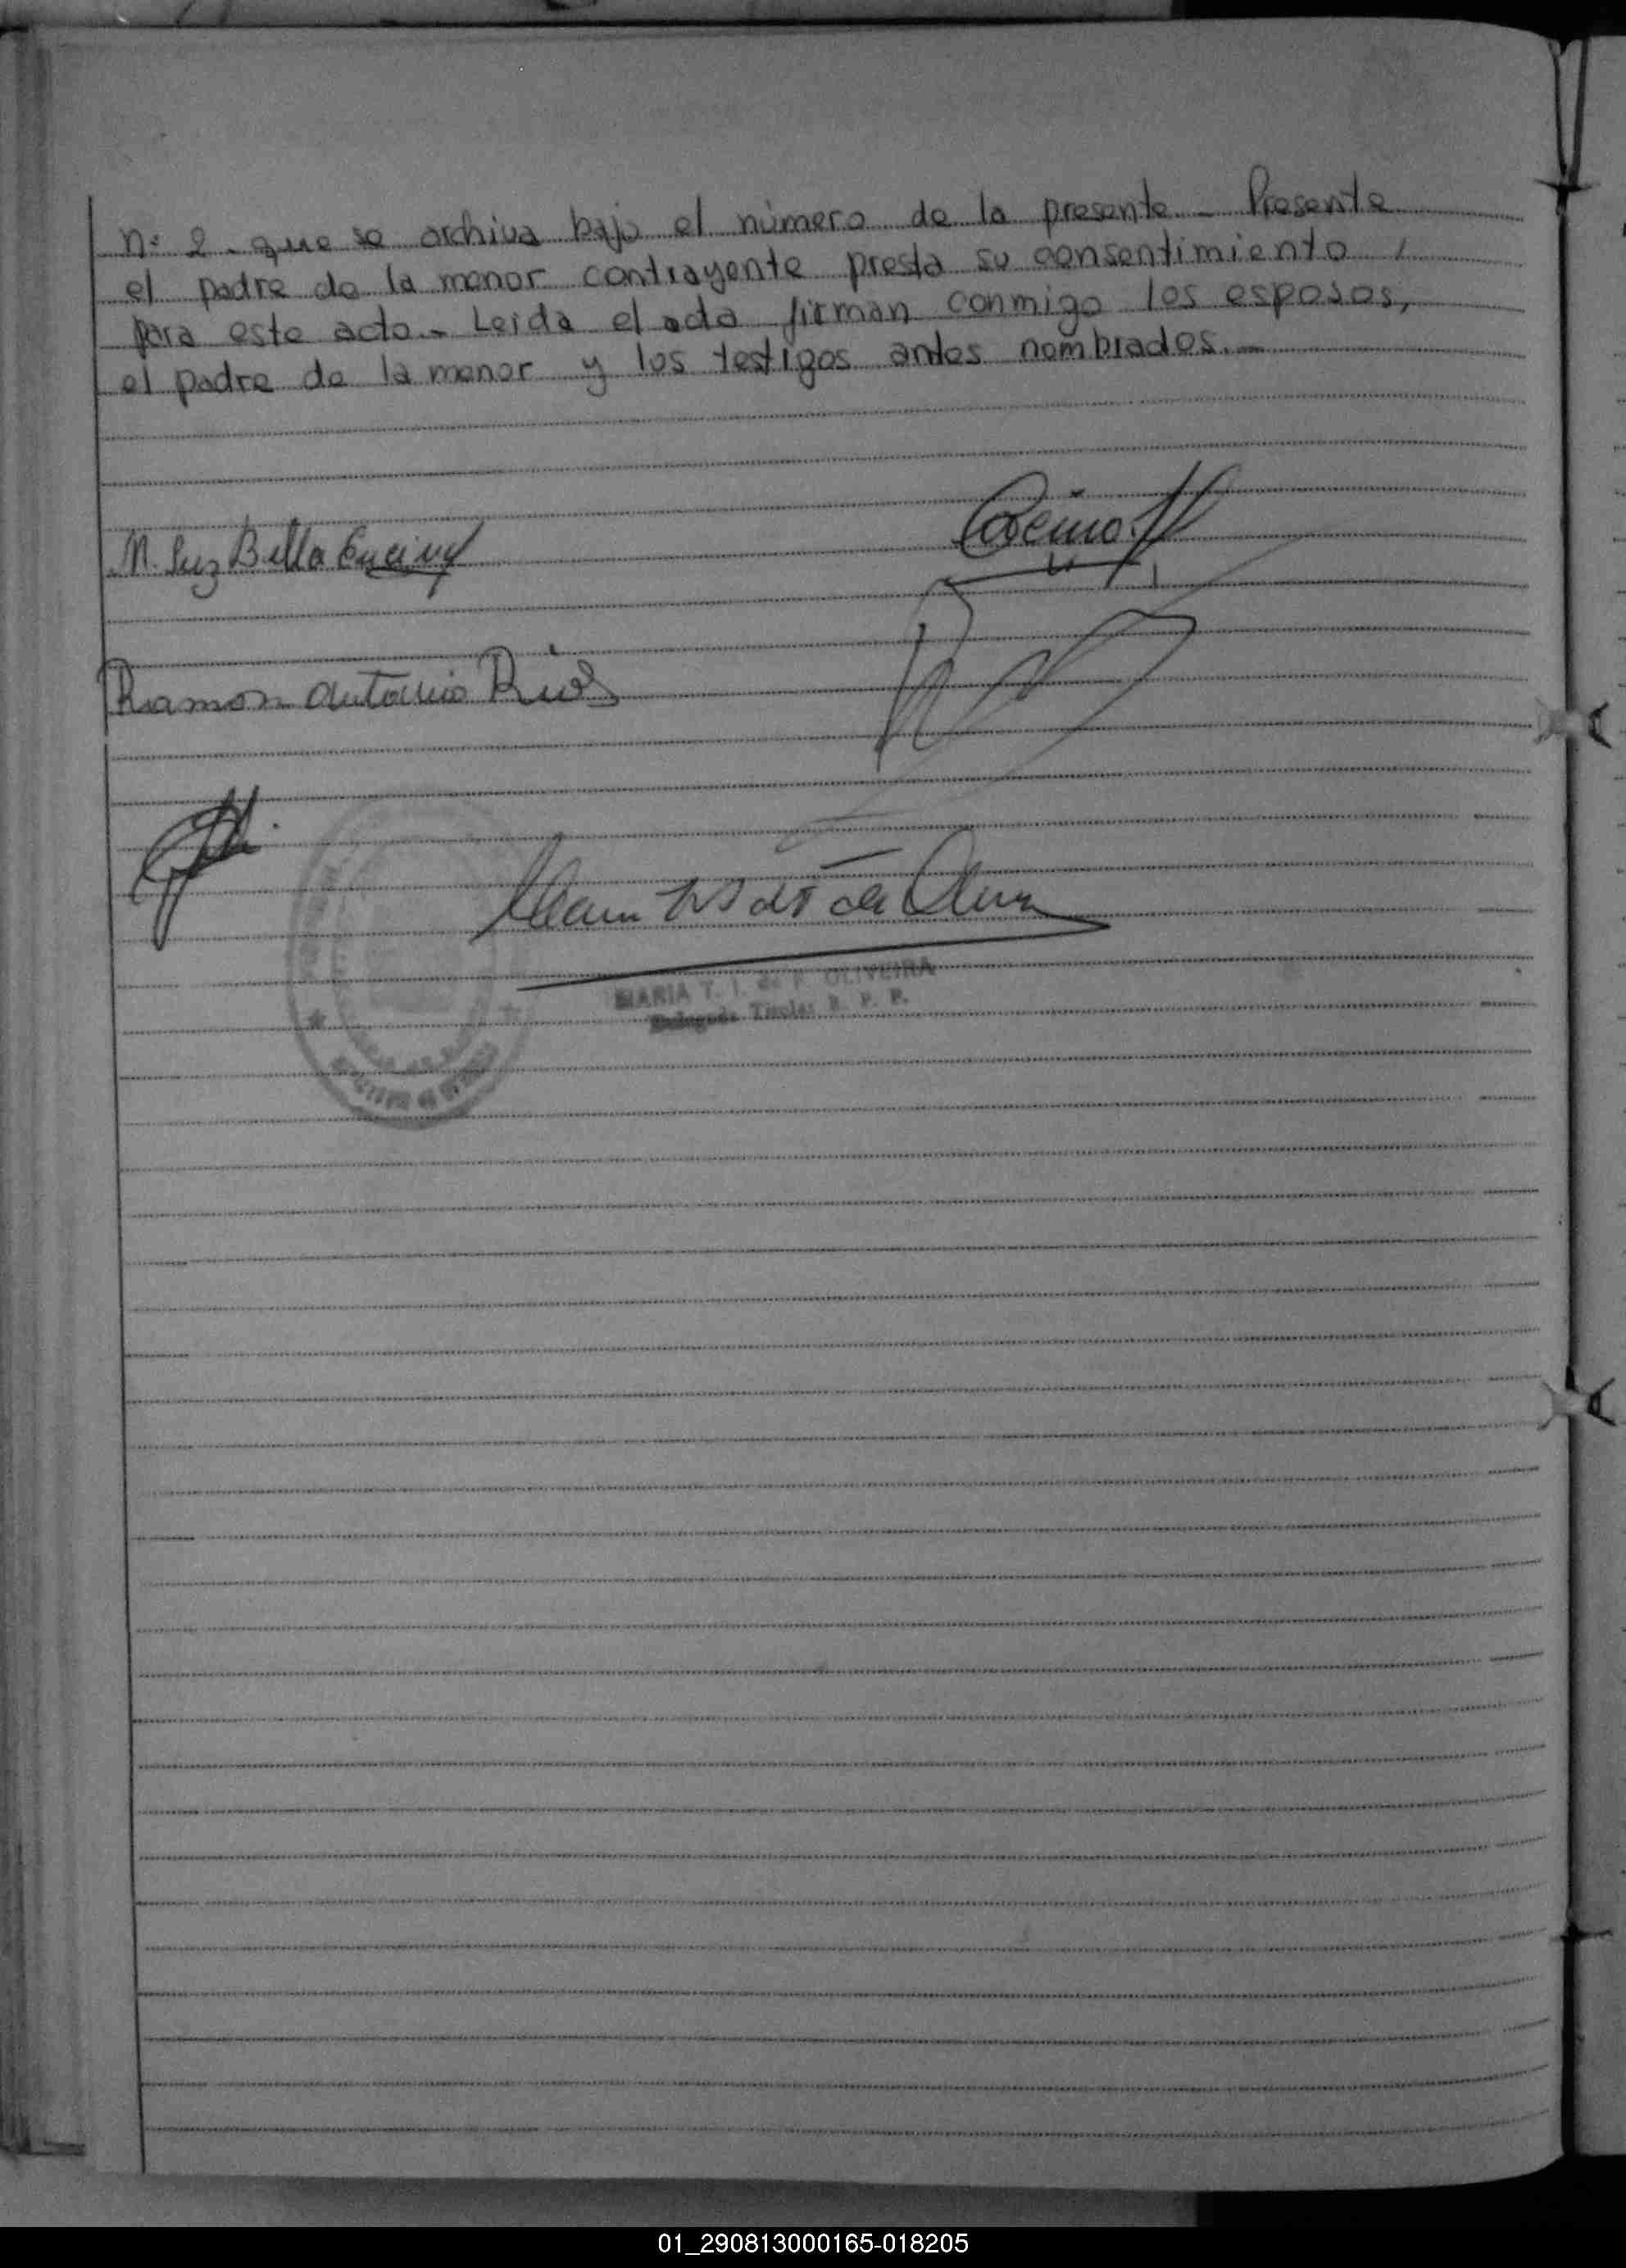 nº 2 - que se archiva bajo el número de la presente. - Presente
el padre de la menor contrayente presta su consentimiento /
para este acto. - Leida el acta firman conmigo los esposos,
el padre de la menor y los testigos antes nombrados. -
M. Luz Bella
Ramon Antonio Rios
MARIA T. I. de F. OLIVEIRA
Titular R. P. P.
01_290813000165-018205